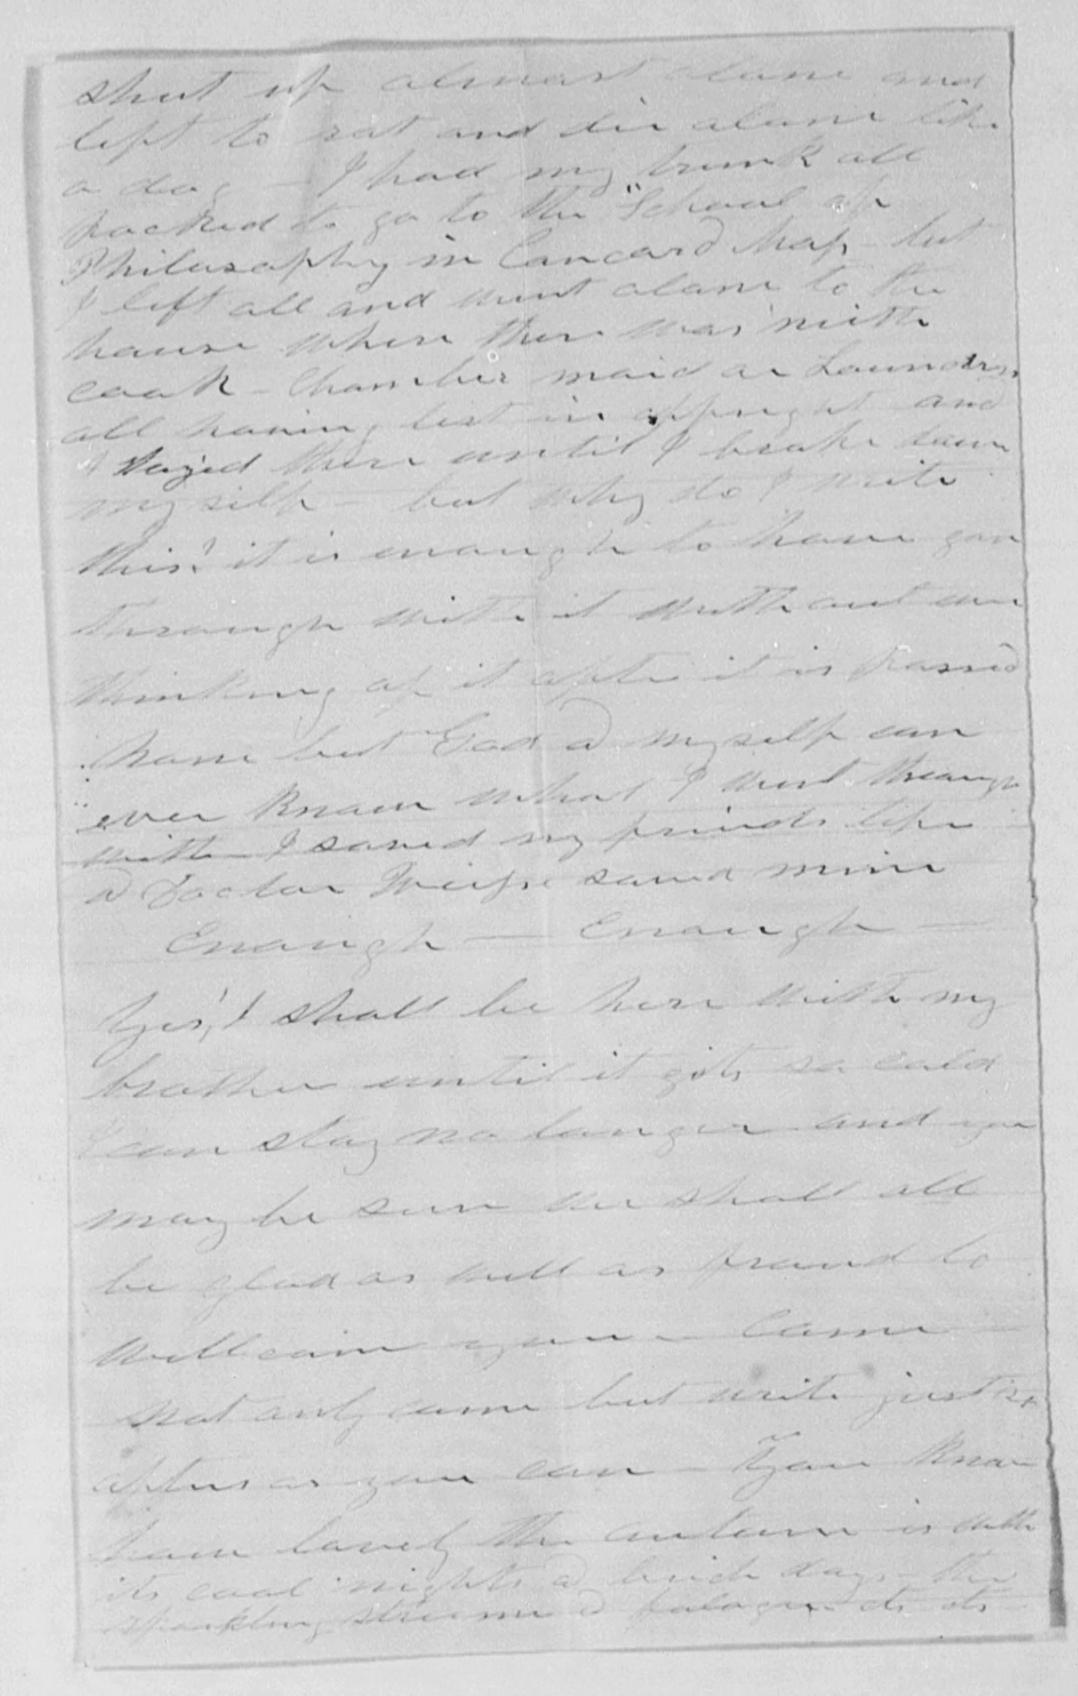 shut up almost alone and
left to rot and die alone like
a dog — I had my trunk all
packed to go to the "School of
Philosophy in Concord Mass - but
I left all and went alone to the
house where there was neither
cook - Chamber maid or Laundress
all having left in affright and
I stayed there until I broke down
my self - but why do I write
this? it is enough to have gon
through with it without
thinking of it after it is passed
none but God & myself can
ever know what I went through
with I saved my friends life
& Doctor saved mine
Enough — Enough —
Yes, I shall be here with my
brother until it gets so cold
I can stay no longer and you
may be sure we shall all
be glad as well as proud to
wellcome you - Come
not only come but write just as
often as you can - You know
how lovely the autumn is with
its cool nights & days - the
sparkling streams & foliage etc etc